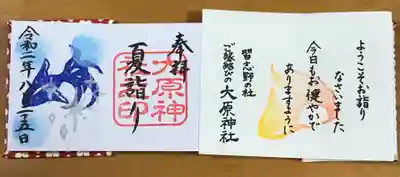 ようこそお詣り
なさいました
今日もお健やかで
ありますように
習志野の杜
ご縁結びの大原神社
奉拝
夏詣り
大原神
令和二年八月二五日